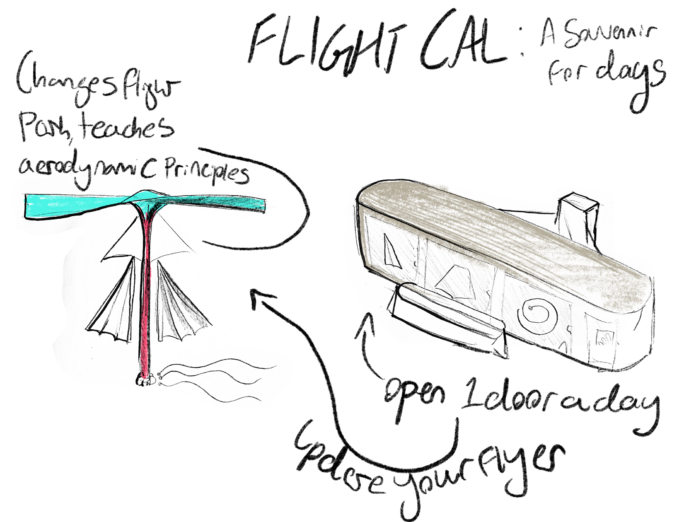 FLIGHT CAL: A Souvenir
for days
Changes flight
Path, teaches
aerodynamic Principles
open 1 door a day
Update your flyer